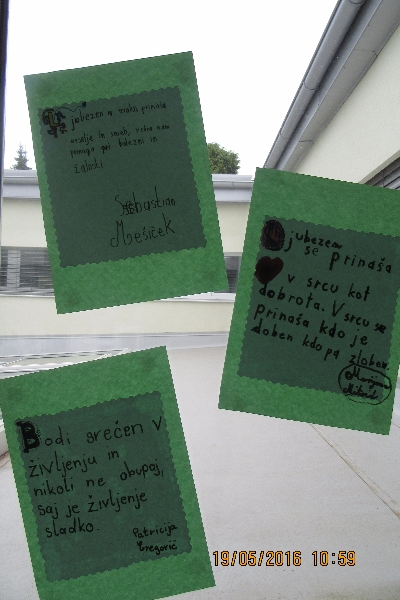 Ljubezen
veselje in smeh, vedno nam
pomaga pri bolezni in
žalosti
Sebastian
Mešiček
Ljubezen
se prinaša
v srcu kot
dobrota. V srcu se
prinaša kdo je
doben kdo pa zloben.
Bodi srečen v
življenju in
nikoli ne obupaj,
saj je življenje
sladko.
Patricija
Gregorič
19/05/2016 10:59